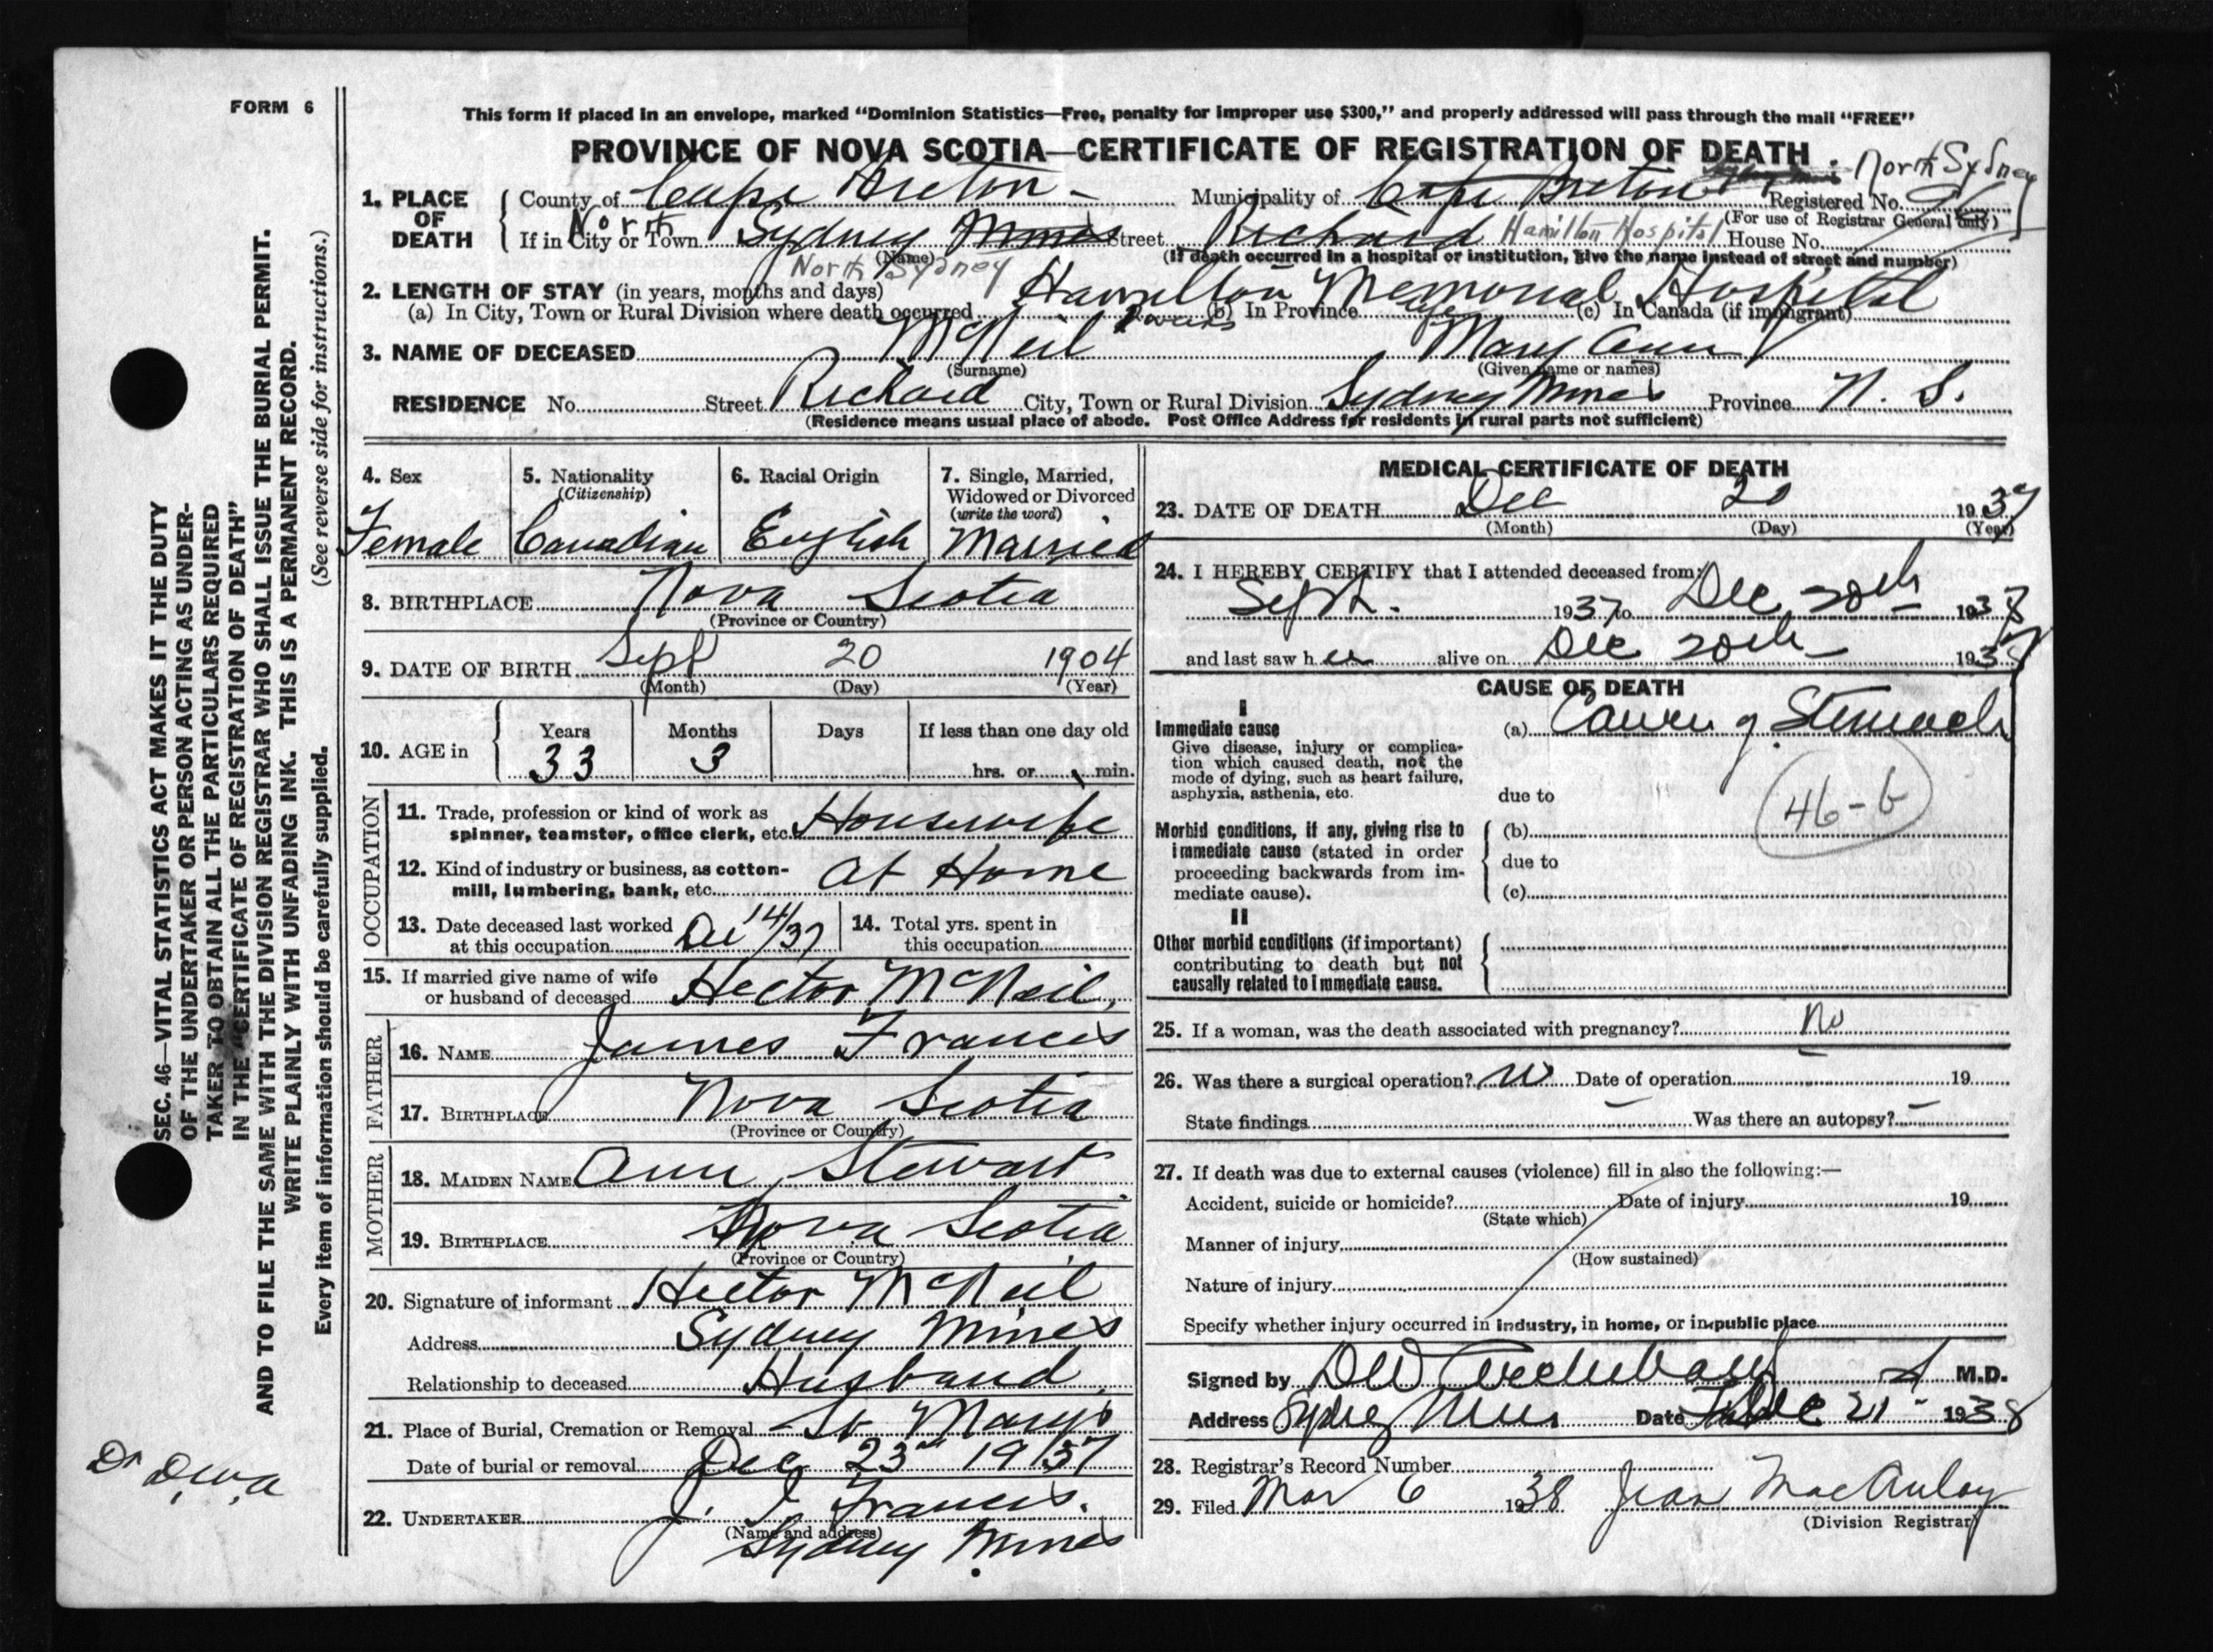 FORM 6
This form if placed in an envelope, marked "Dominion Statistics—Free, penalty for improper use $300," and properly addressed will pass through the mail "FREE"
PROVINCE OF NOVA SCOTIA—CERTIFICATE OF REGISTRATION OF DEATH
North Sydney
1. PLACE OF DEATH County of Cape Breton Municipality of Cape Breton Registered No.
(For use of Registrar General only)
If in City or Town North Sydney Mines Street Richard Hamilton Hospital House No.
(Name) (If death occurred in a hospital or institution, give the name instead of street and number)
North Sydney
2. LENGTH OF STAY (in years, months and days) Hamilton Memorial Hospital
(a) In City, Town or Rural Division where death occurred (b) In Province (c) In Canada (if immigrant)
3. NAME OF DECEASED McNeil Mary Ann
(Surname) (Given name or names)
RESIDENCE No. Street Richard City, Town or Rural Division Sydney Mines Province N. S.
(Residence means usual place of abode. Post Office Address for residents in rural parts not sufficient)
4. Sex
Female
5. Nationality
(Citizenship)
Canadian
6. Racial Origin
English
7. Single, Married,
Widowed or Divorced
(write the word)
Married
8. BIRTHPLACE Nova Scotia
(Province or Country)
9. DATE OF BIRTH Sept 20 1904
(Month) (Day) (Year)
10. AGE in Years Months Days If less than one day old
33 3 hrs. or min.
OCCUPATION
11. Trade, profession or kind of work as
spinner, teamster, office clerk, etc. Housewife
12. Kind of industry or business, as cotton-
mill, lumbering, bank, etc. At Home
13. Date deceased last worked
at this occupation Dec 14/37
14. Total yrs. spent in
this occupation
15. If married give name of wife
or husband of deceased Hector McNeil,
FATHER
16. NAME James Francis
17. BIRTHPLACE Nova Scotia
(Province or Country)
MOTHER
18. MAIDEN NAME Ann Stewart
19. BIRTHPLACE Nova Scotia
(Province or Country)
20. Signature of informant Hector McNeil
Address Sydney Mines
Relationship to deceased Husband
21. Place of Burial, Cremation or Removal St Mary's
Date of burial or removal Dec 23rd 1937
22. UNDERTAKER J. J. Francis.
(Name and address)
Sydney Mines
MEDICAL CERTIFICATE OF DEATH
23. DATE OF DEATH Dec 20 1937
(Month) (Day) (Year)
24. I HEREBY CERTIFY that I attended deceased from:
Sept. 1937 to Dec 20th 1938
and last saw her alive on Dec 20th 1937
CAUSE OF DEATH
I
Immediate cause
Give disease, injury or complica-
tion which caused death, not the
mode of dying, such as heart failure,
asphyxia, asthenia, etc.
(a) Cancer of Stomach
due to
46-b
Morbid conditions, if any, giving rise to
immediate cause (stated in order
proceeding backwards from im-
mediate cause).
(b)
due to
(c)
II
Other morbid conditions (if important)
contributing to death but not
causally related to immediate cause.
25. If a woman, was the death associated with pregnancy? No
26. Was there a surgical operation? no Date of operation 19
State findings Was there an autopsy?
27. If death was due to external causes (violence) fill in also the following:—
Accident, suicide or homicide? Date of injury 19
(State which)
Manner of injury
(How sustained)
Nature of injury
Specify whether injury occurred in industry, in home, or in public place
Signed by M.D.
Address Sydney Mines Date Dec 21 1938
28. Registrar's Record Number
29. Filed Mar 6 1938 Jean MacAulay
(Division Registrar)
SEC. 46—VITAL STATISTICS ACT MAKES IT THE DUTY
OF THE UNDERTAKER OR PERSON ACTING AS UNDER-
TAKER TO OBTAIN ALL THE PARTICULARS REQUIRED
IN THE "CERTIFICATE OF REGISTRATION OF DEATH"
AND TO FILE THE SAME WITH THE DIVISION REGISTRAR WHO SHALL ISSUE THE BURIAL PERMIT.
WRITE PLAINLY WITH UNFADING INK. THIS IS A PERMANENT RECORD.
Every item of information should be carefully supplied. (See reverse side for instructions.)
Dr D.W.A